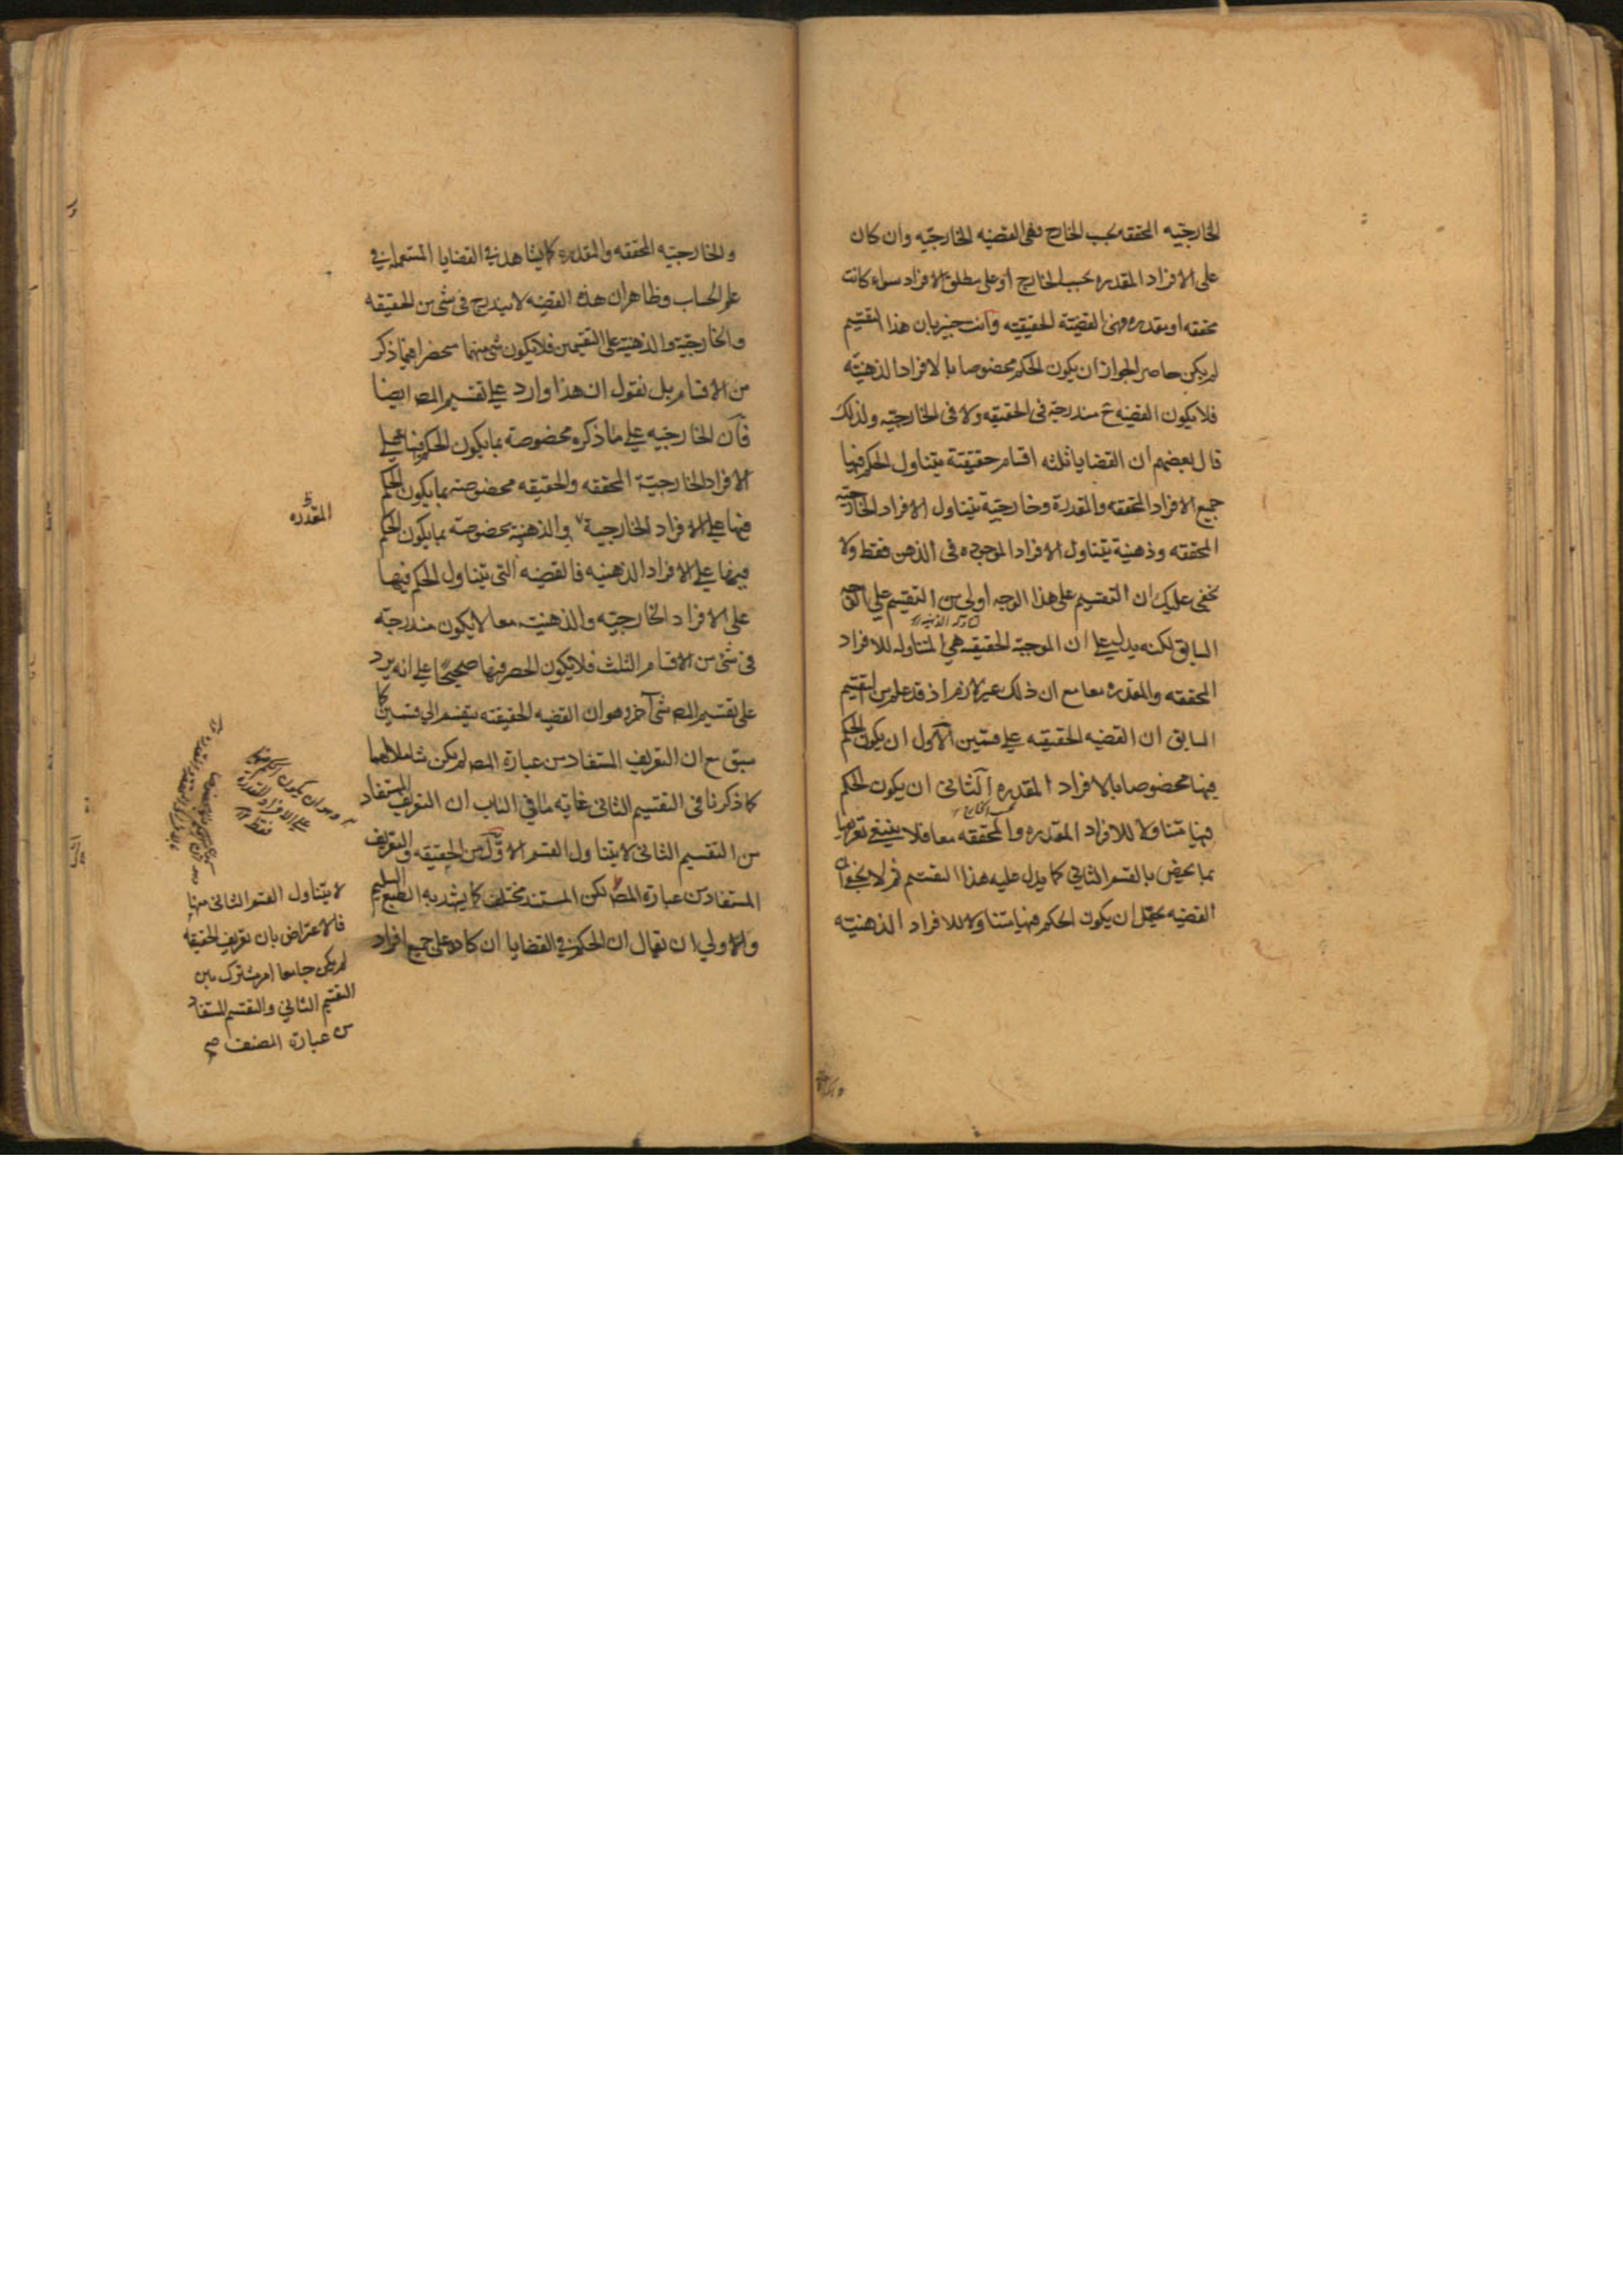 الخارجيه المحققه بحسب الخارج فهى القضيه الخارجيه وان كان
على الافراد المقدره بحسب الخارج او على مطلق الافراد سواء كانت
محققه او مقدره فهى القضية الحقيقيه وانت خبير بان هذا التقسيم
لم يكن حاصر الجواز ان يكون الحكم مخصوصا بالافراد الذهنيه
فلا يكون القضيه ح مندرجة فى الحقيقه ولا فى الخارجيه ولذلك
قال بعضهم ان القضايا ثلثه اقسام حقيقية يتناول الحكم فيها
جميع الافراد المحققه والمقدرة وخارجية يتناول الافراد الخارجيه
المحققه وذهنية يتناول الافراد الموجوده فى الذهن فقط ولا
يخفى عليك ان التقسيم على هذا الوجه اولى من التقسيم على الوجه
السابق لكنه يدل على ان الموجبة الحقيقيه هي المتناوله للافراد
المحققه والمقدره معا مع ان ذلك غير لازم اذ قد علم من التقسيم
السابق ان القضيه الحقيقيه على قسمين الاول ان يكون الحكم
فيها مخصوصا بالافراد المقدره الثانى ان يكون الحكم
بحسب الخارج
فيها متناولا للافراد المقدره والمحققه معا فلا ينبغى تعريفها
بما يختص بالقسم الثاني كما يدل عليه هذا التقسيم ثم لا يخفى ان
القضيه يحتمل ان يكون الحكم فيها متناولا للافراد الذهنيه
والخارجيه المحققه والمقدره كما يشاهد في القضايا المستعمله في
علم الحساب وظاهر ان هذه القضيه لا يندرج فى شى من الحقيقه
والخارجية والذهنية على التقسيمين فلا يكون شى منهما منحصرا فيما ذكر
من الاقسام بل نقول ان هذا وارد على تقسيم المص ايضا
فان الخارجيه على ما ذكره مخصوصة بما يكون الحكم فيها على
الافراد الخارجية المحققه والحقيقه مخصوصه بما يكون الحكم
فيها على الافراد الخارجية والذهنية مخصوصة بما يكون الحكم
المقدره
فيها على الافراد الذهنيه فالقضيه التى يتناول الحكم فيها
على الافراد الخارجيه والذهنيه معا لا يكون مندرجة
فى شى من الاقسام الثلث فلا يكون الحصر فيها صحيحا على انه يرد
على تقسيم المص شى آخر وهو ان القضيه الحقيقيه ينقسم الى قسمين كما
سبق مع ان التعريف المستفاد من عبارة المص لم يكن شاملا لهما
كما ذكرنا فى التقسيم الثانى غاية ما في الباب ان التعريف المستفاد
من التقسيم الثانى لا يتناول القسم الاول من الحقيقه والتعريف
المستفاد من عبارة المص لكن المستند مختلف كما يشهد به الطبع السليم
والاولى ان يقال ان الحكم في القضايا ان كان على جميع افراد
وهو ان يكون الحكم مخصوصا
على الافراد المقدرة
فقط
لا يتناول القسم الثانى منها
فالاعتراض بان تعريف الحقيقه
لم يكن جامعا امر مشترك بين
التقسيم الثاني والتقسيم المستفاد
من عبارة المصنف صح